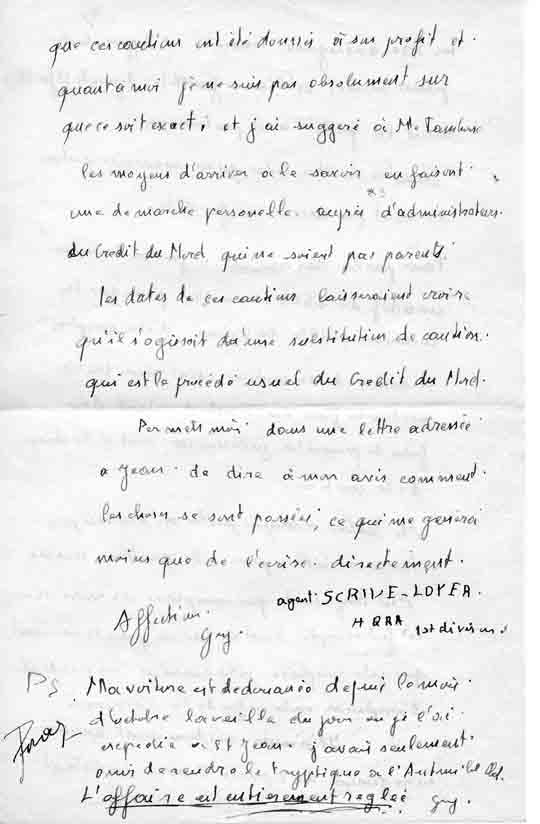 que ces cautions ont été données à son profit et.
quant a moi je ne suis pas absolument sur
que ce soit exact, et j'ai suggeré à Me
les moyens d'arriver à le savoir en faisant.
une demarche personnelle auprès d'administrateurs.
du Credit du Nord qui ne soient pas parents.
les dates de ces cautions laisseraient croire
qu'il s'agissait d'une substitution de caution.
qui est le procédé usuel du Credit du Nord.
Permets moi dans une lettre adressée
a Jean. de dire à mon avis comment.
les choses se sont passées, ce qui me generai
moins que de l'écrire. directement.
Affection. agent. SCRIVE-LOYER.
Guy. HQRA 1st division.
PS. Ma voiture est dedouanée depuis le mois.
d'octobre la veille du jour ou je l'ai
expediée a St Jean. j'avais seulement
omis de rendre le tryptique a l'Automobile Club.
L'affaire est entierement reglée Guy.